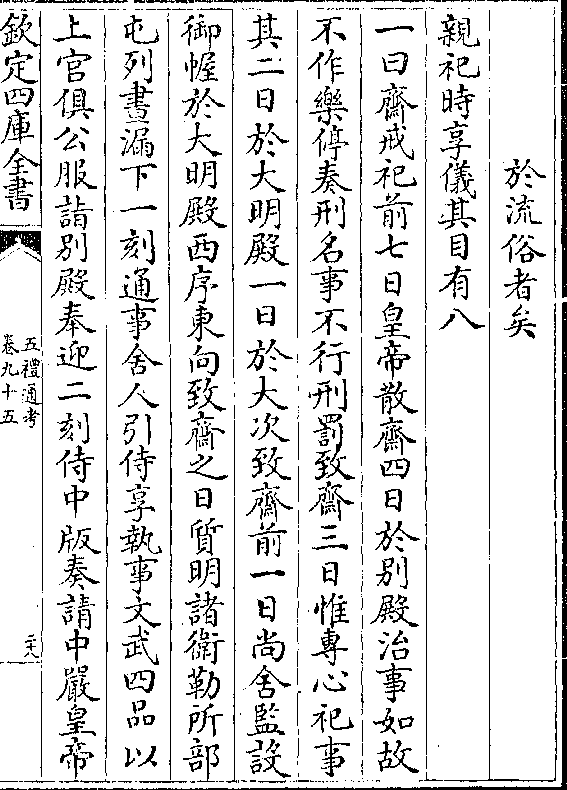 於流俗者矣
親祀時享儀其目有八
一曰齋戒祀前七日皇帝散齋四日於别殿治事如故
不作樂停奏刑名事不行刑罰致齋三日惟專心祀事
其二日於大明殿一日於大次致齋前一日尚舍監設
御幄於大明殿西序東向致齋之日質明諸衛勒所部
屯列晝漏下一刻通事舍人引侍享執事文武四品以
上官俱公服詣别殿奉迎二刻侍中版奏請中嚴皇帝
欽定四庫全書
五禮通考
卷九十五
二十八